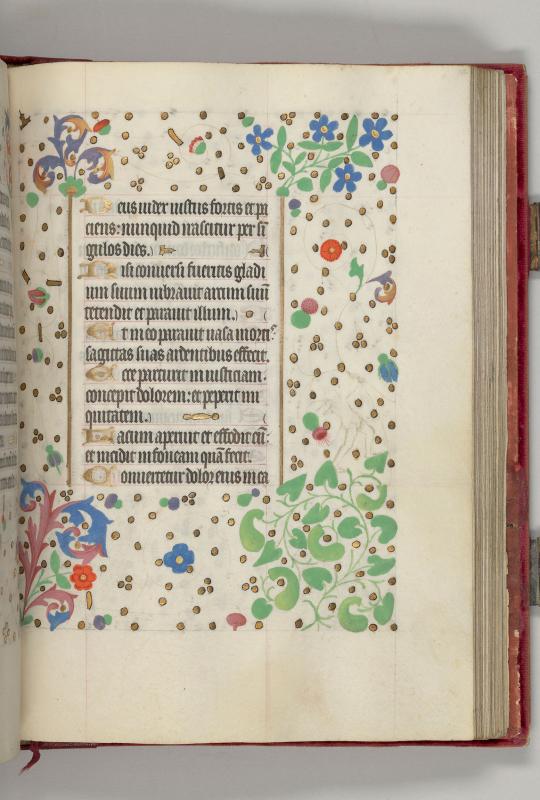 Deus iudex iustus fortis et pa
ciens: nunquid irascitur per si
gulos dies.
Nisi conuersi fueritis gladi
um suum uibrauit arcum suū
tetendit et parauit illum.
Et in eo parauit uasa morti
sagittas suas ardentibus effecit.
Ecce parturit iniusticiam:
concepit dolorem: et peperit ini
quitatem.
Lacum aperuit et effodit eū:
et incidit in foueam quā fecit.
Conuertetur dolor eius in ca